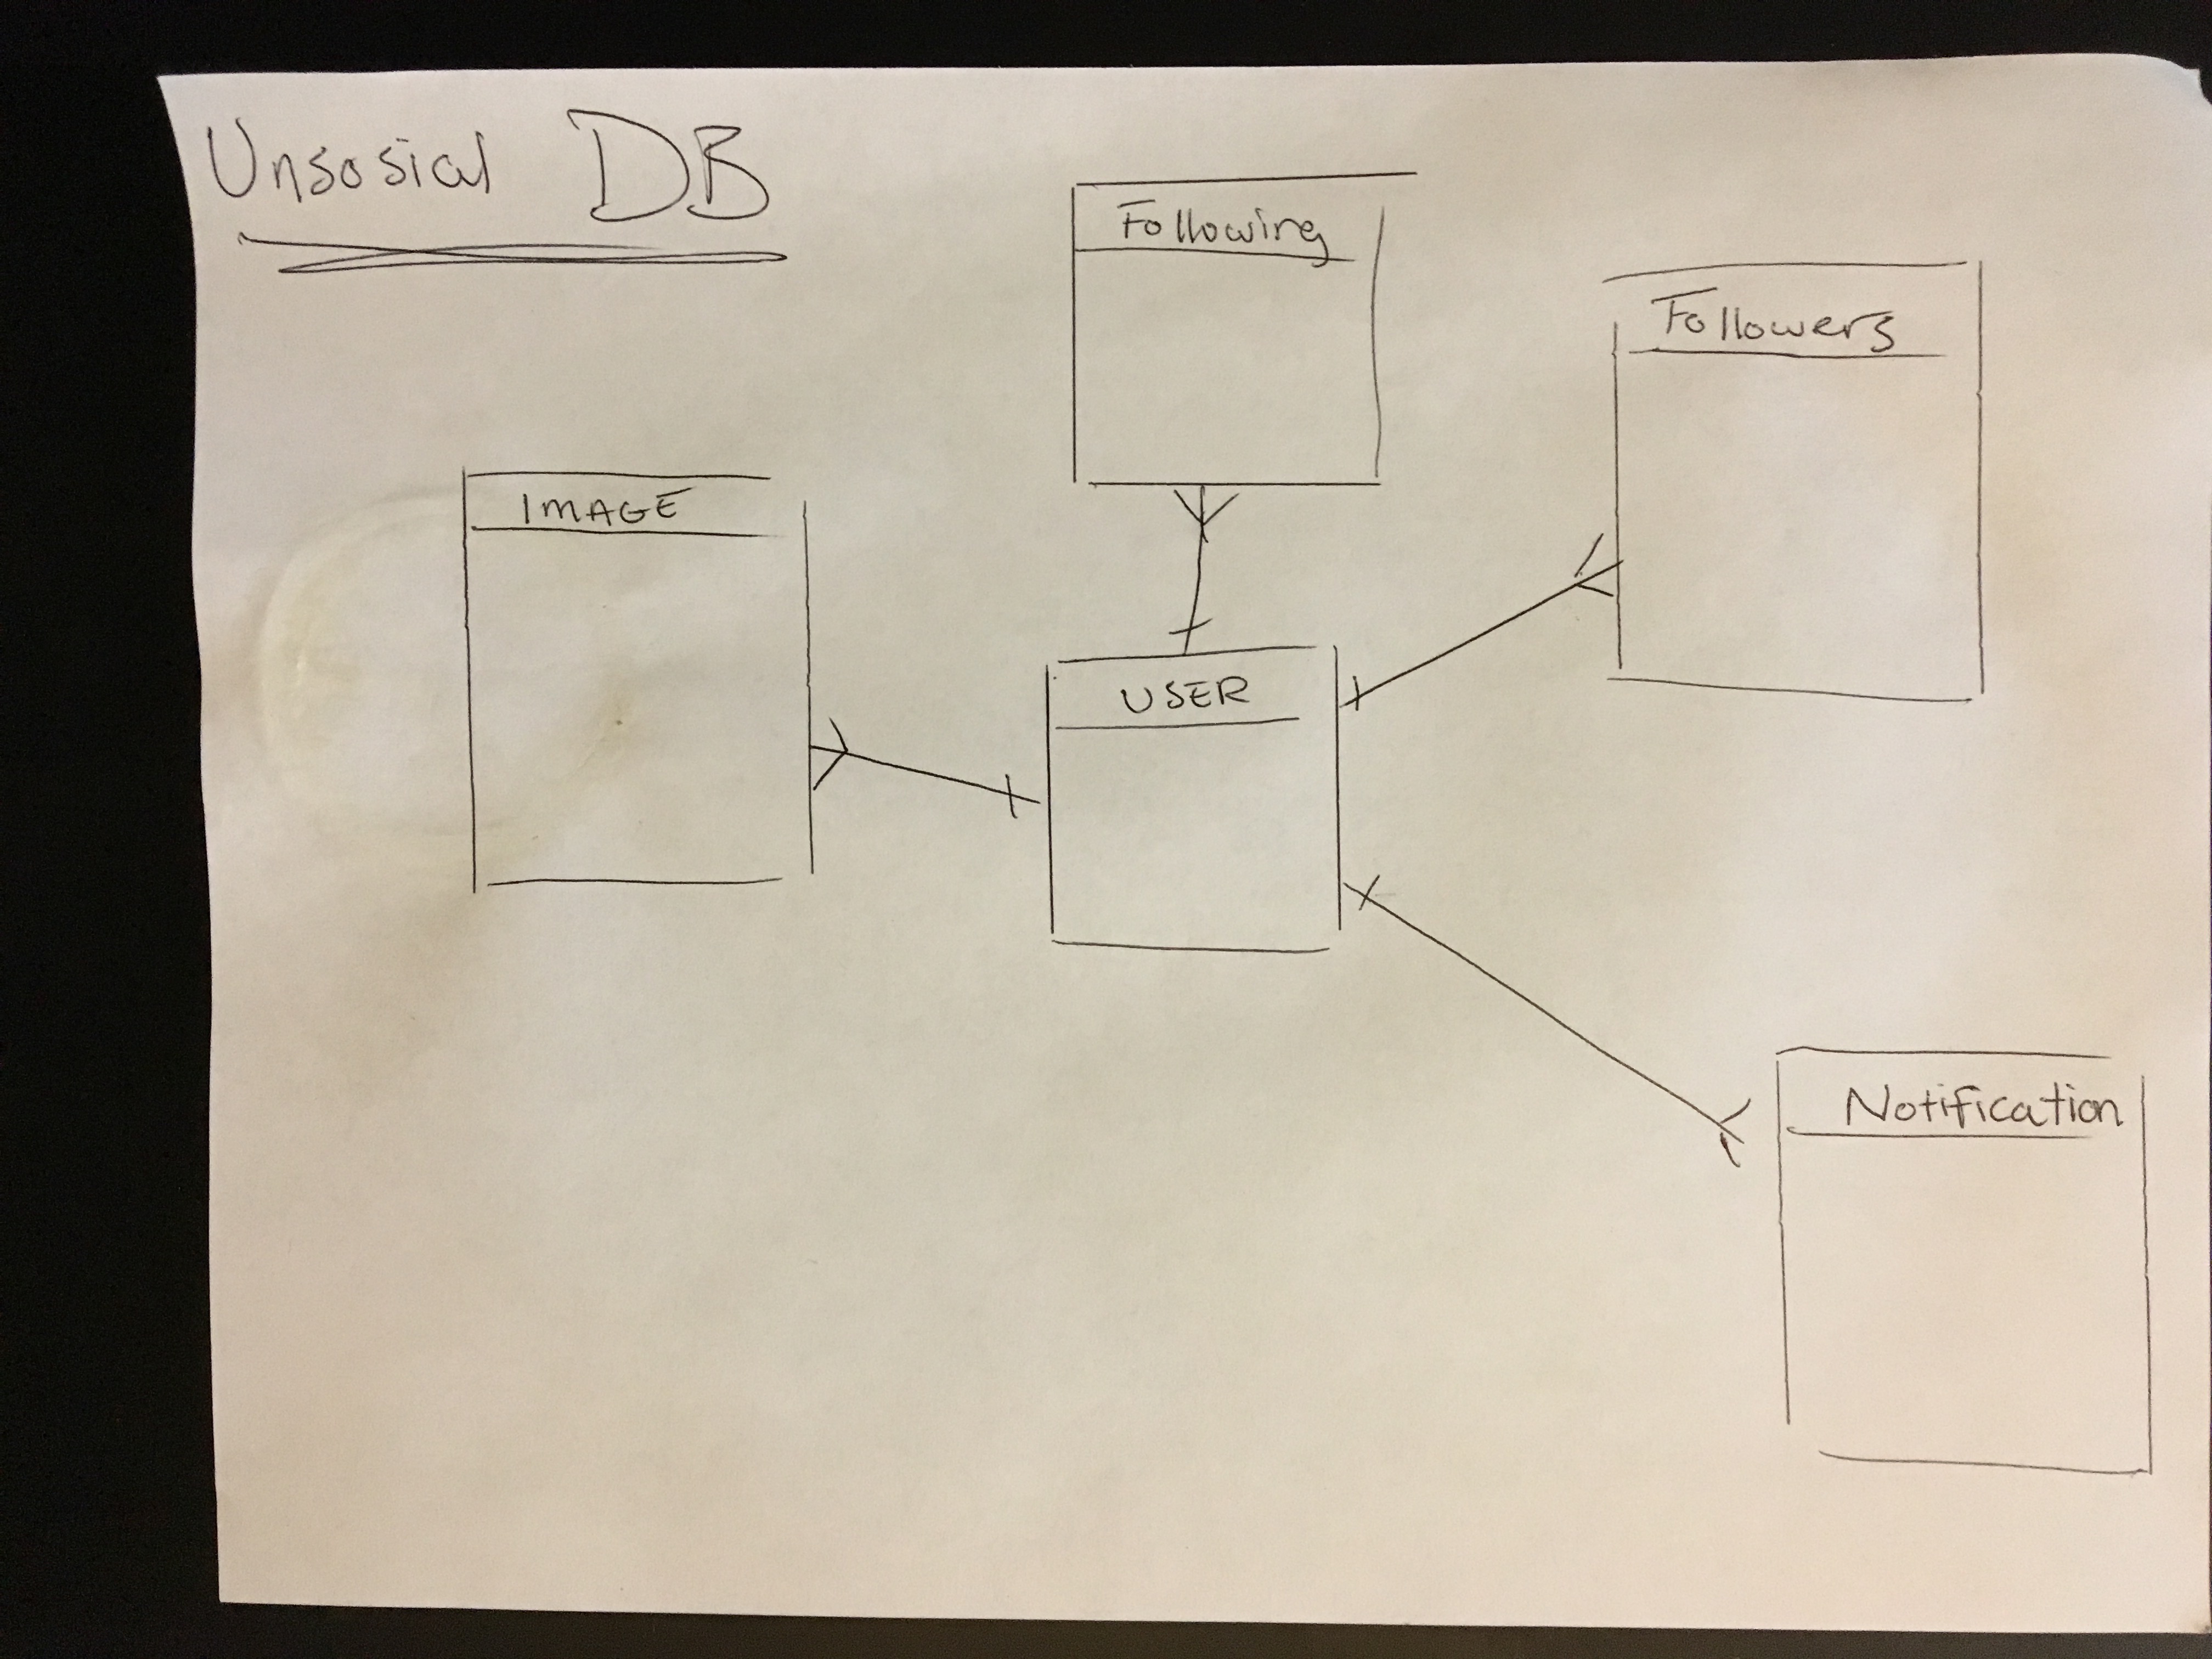 Unsosial DB
Following
Followers
IMAGE
USER
Notification